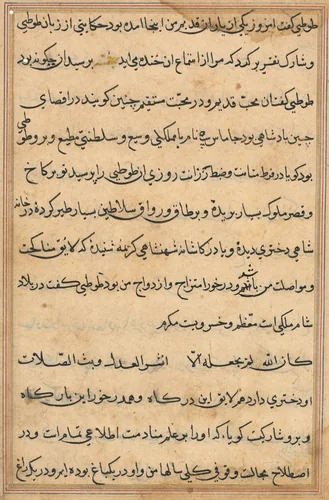 طوطی گفت امروز یکی از یاران قدیم من اینجا آمده بود حکایتی از زبان طوطی
و شارک تقریر کرد که مرا از استماع آن خنده می‌آید خجسته پرسید آن چگونه بود
طوطی گفت آن محب قدیم و در محبت مستقیم چنین گویند در اقصای
چین پادشاهی بود جاماس نام با مملکتی وسیع و سلطنتی مطیع و برو طوطی
بود گویا در فرط متانت و ضبط روزی از طوطی را پرسید تو بر کاخ
و قصر ملوک بسیار پریده و بر طاق و رواق سلاطین بسیار طیر کرده در خانه
شاهی دختری دیده و یا در کاشانه شهنشاهی کریمه شنیده که لایق مناکحت
و مواصلت من باشد و در خور امتزاج و ازدواج من بود طوطی گفت در بلاد
شام ملکی است معظم و خسرویست مکرم
کان الله لم یجعله الا لنشر العدل و بث الصلات
او دختری دارد هم لایق این درگاه و هم در خور این بارگاه
و برو شارکیست گویا که او را بر علم منادمت اطلاعی تمام است و در
اصطلاح مجالست وقوفی کلی سالها من و او در یک باغ بوده ایم و در یک راغ